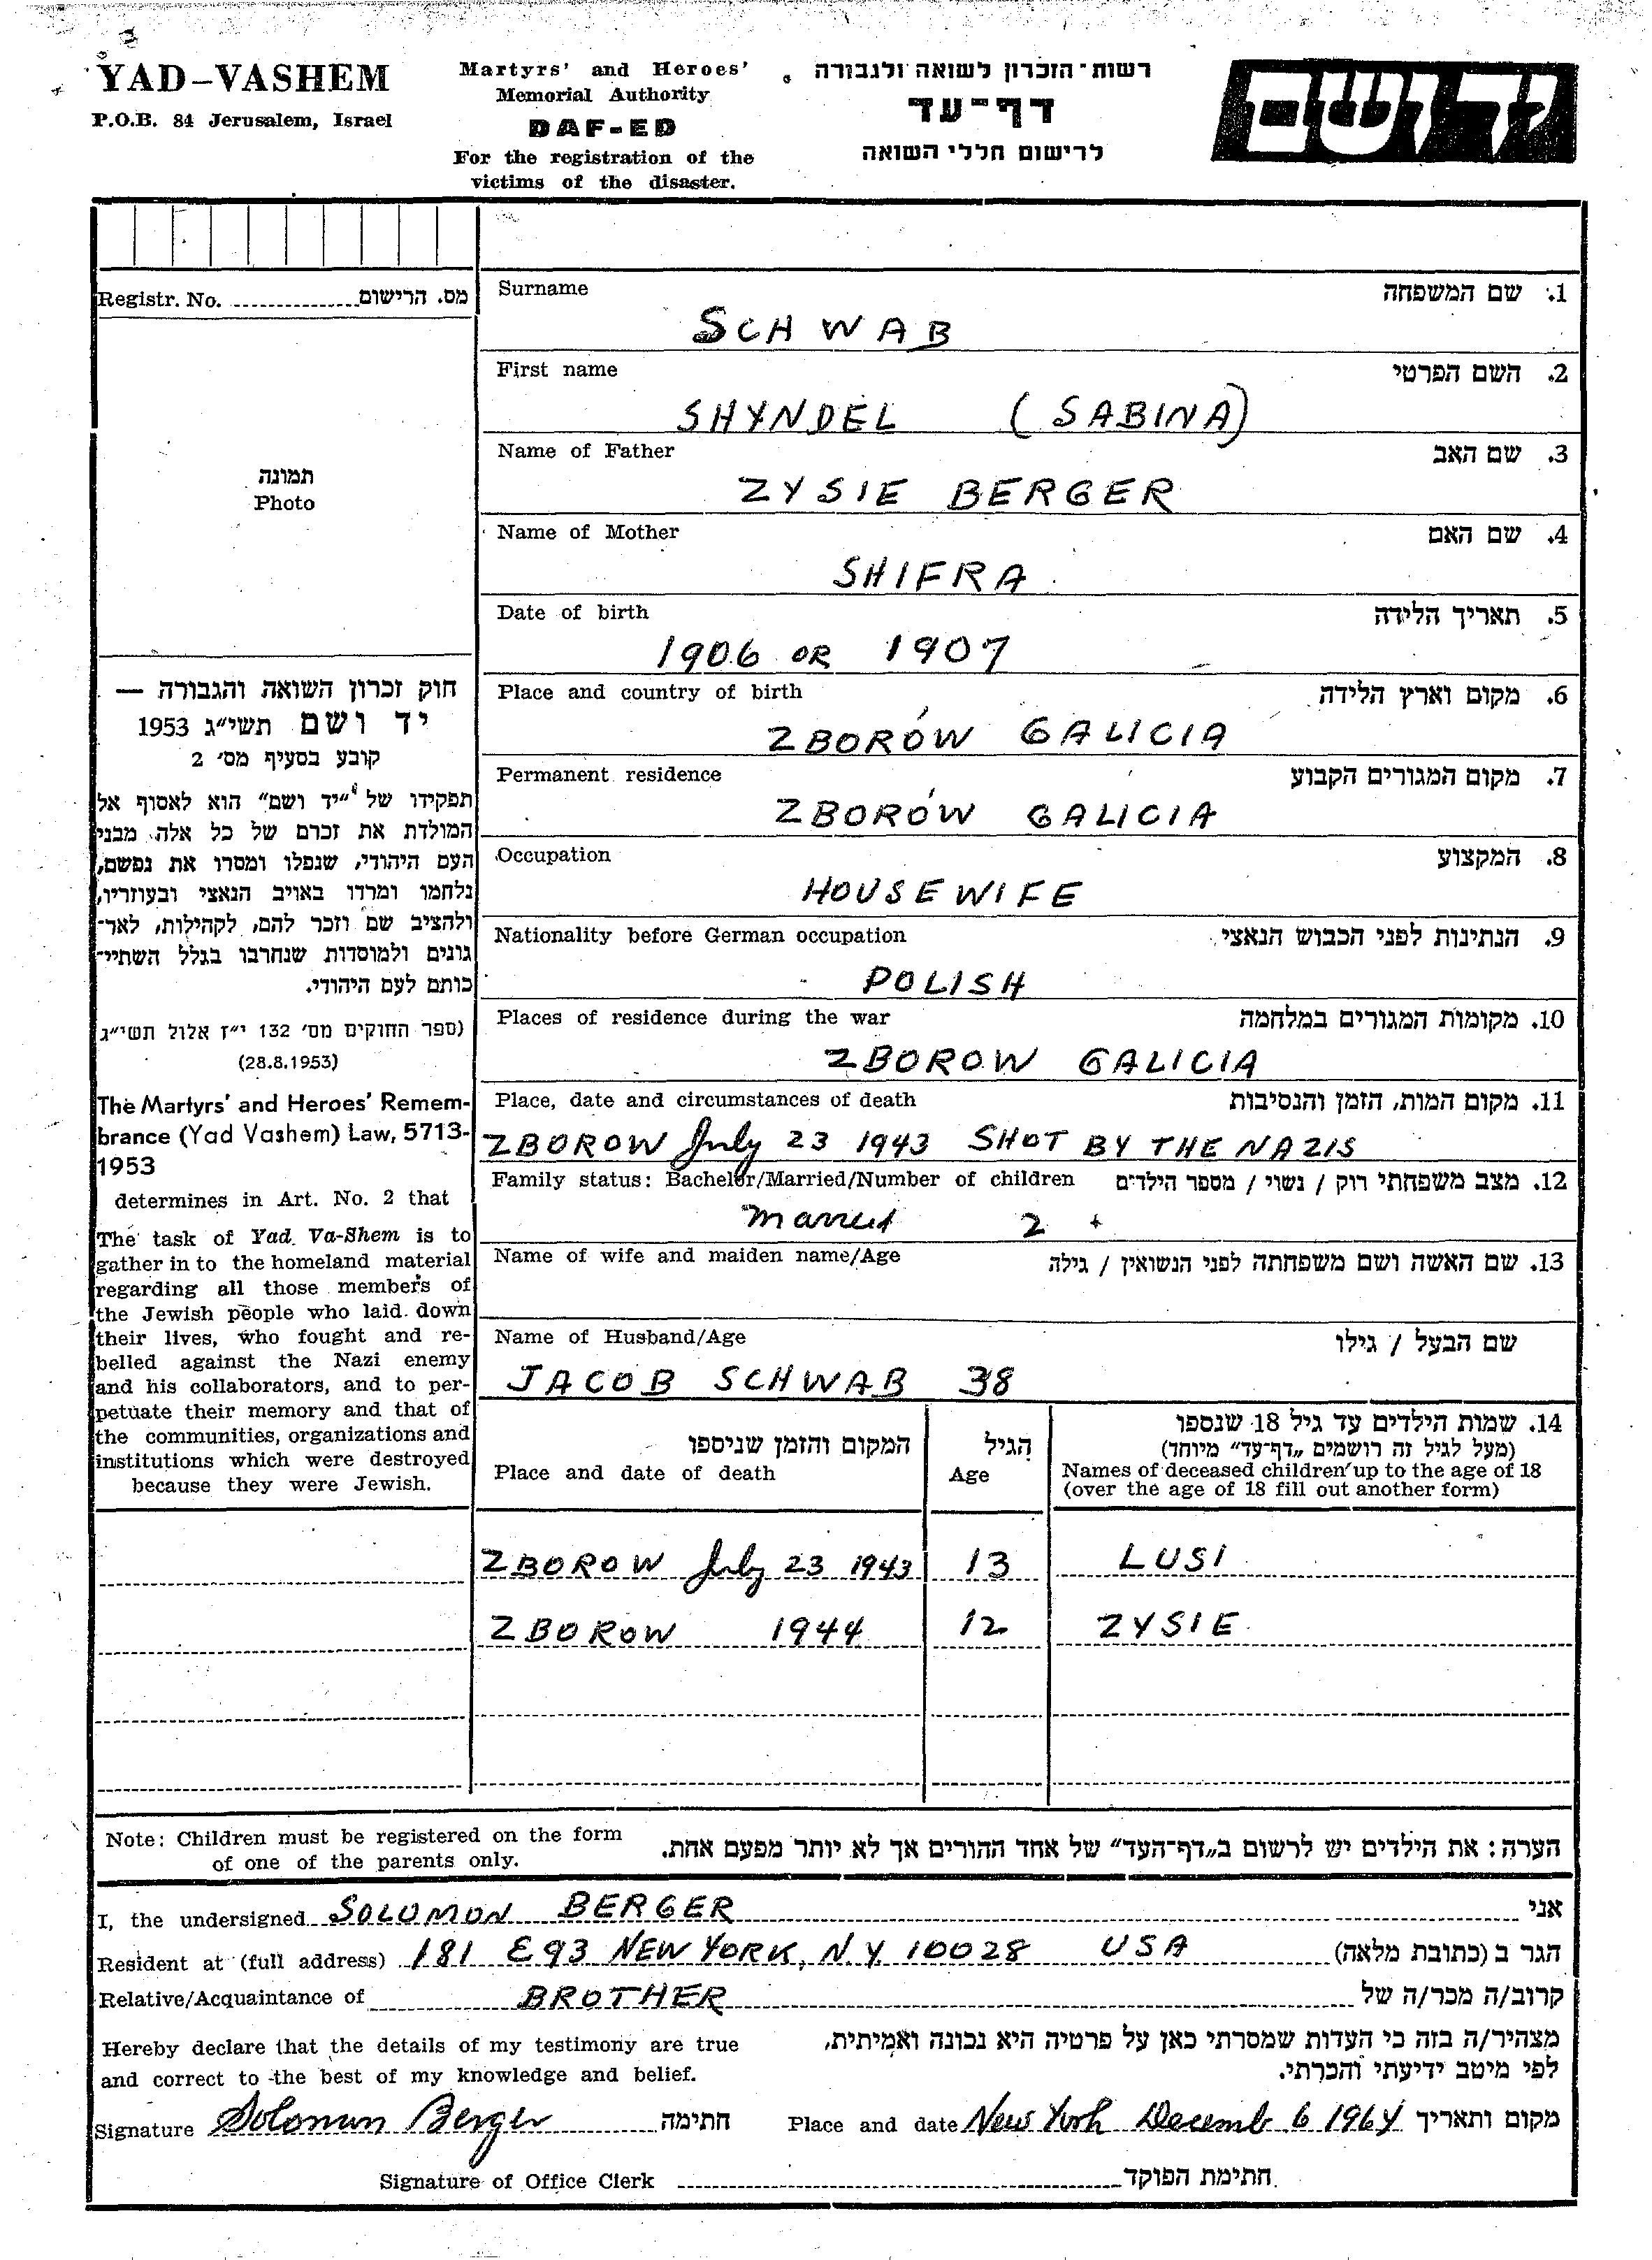 YAD-VASHEM
P.O.B. 84 Jerusalem, Israel
Martyrs' and Heroes'
Memorial Authority
DAF-ED
For the registration of the
victims of the disaster.
רשות-הזכרון לשואה ולגבורה
דף-עד
לרישום חללי השואה
יד ושם
Registr. No. מס. הרישום
תמונה
Photo
חוק זכרון השואה והגבורה —
יד ושם תשי"ג 1953
קובע בסעיף מס' 2
תפקידו של "יד ושם" הוא לאסוף אל
המולדת את זכרם של כל אלה מבני
העם היהודי, שנפלו ומסרו את נפשם,
נלחמו ומרדו באויב הנאצי ובעוזריו,
ולהציב שם וזכר להם, לקהילות, לאר-
גונים ולמוסדות שנחרבו בגלל השתיי-
כותם לעם היהודי.
(ספר החוקים מס' 132 י"ז אלול תשי"ג
(28.8.1953)
The Martyrs' and Heroes' Remem-
brance (Yad Vashem) Law, 5713-
1953
determines in Art. No. 2 that
The task of Yad Va-Shem is to
gather in to the homeland material
regarding all those members of
the Jewish people who laid down
their lives, who fought and re-
belled against the Nazi enemy
and his collaborators, and to per-
petuate their memory and that of
the communities, organizations and
institutions which were destroyed
because they were Jewish.
Surname 1. שם המשפחה
SCHWAB
First name 2. השם הפרטי
SHYNDEL (SABINA)
Name of Father 3. שם האב
ZYSIE BERGER
Name of Mother 4. שם האם
SHIFRA
Date of birth 5. תאריך הלידה
1906 OR 1907
Place and country of birth 6. מקום וארץ הלידה
ZBORÓW GALICIA
Permanent residence 7. מקום המגורים הקבוע
ZBORÓW GALICIA
Occupation 8. המקצוע
HOUSEWIFE
Nationality before German occupation 9. הנתינות לפני הכבוש הנאצי
POLISH
Places of residence during the war 10. מקומות המגורים במלחמה
ZBOROW GALICIA
Place, date and circumstances of death 11. מקום המות, הזמן והנסיבות
ZBOROW July 23 1943 SHOT BY THE NAZIS
Family status: Bachelor/Married/Number of children 12. מצב משפחתי רוק / נשוי / מספר הילדים
Married 2 +
Name of wife and maiden name/Age 13. שם האשה ושם משפחתה לפני הנשואין / גילה
Name of Husband/Age שם הבעל / גילו
JACOB SCHWAB 38
המקום והזמן שניספו
Place and date of death
הגיל
Age
14. שמות הילדים עד גיל 18 שנספו
(מעל לגיל זה רושמים "דף-עד" מיוחד)
Names of deceased children up to the age of 18
(over the age of 18 fill out another form)
ZBOROW July 23 1943 13 LUSI
ZBOROW 1944 12 ZYSIE
Note: Children must be registered on the form
of one of the parents only.
הערה: את הילדים יש לרשום ב"דף-העד" של אחד ההורים אך לא יותר מפעם אחת.
I, the undersigned SOLOMON BERGER אני
Resident at (full address) 181 E93 NEW YORK, N.Y. 10028 USA הגר ב (כתובת מלאה)
Relative/Acquaintance of BROTHER קרוב/ה מכר/ה של
Hereby declare that the details of my testimony are true
and correct to the best of my knowledge and belief.
מצהיר/ה בזה כי העדות שמסרתי כאן על פרטיה היא נכונה ואמיתית,
לפי מיטב ידיעתי והכרתי.
Signature Solomon Berger חתימה Place and date New York Decemb 6 1964 מקום ותאריך
Signature of Office Clerk חתימת הפוקד